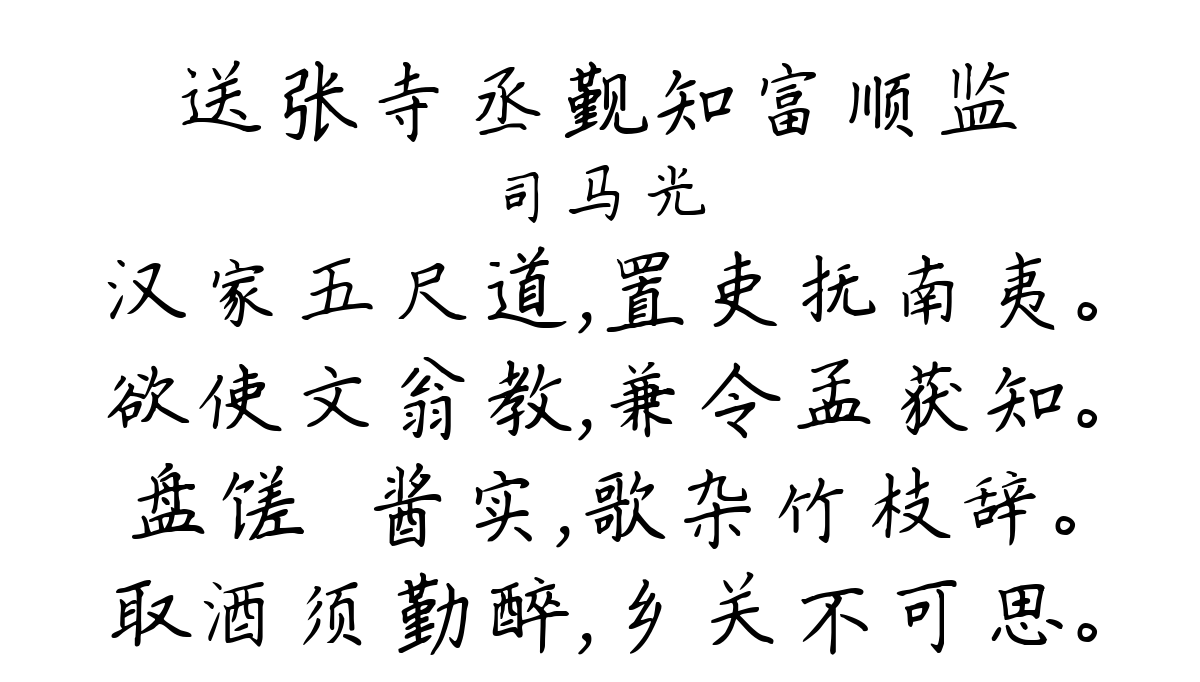 送张寺丞觐知富顺监
司马光
汉家五尺道,置吏抚南夷。
欲使文翁教,兼令孟获知。
盘馐 酱实,歌杂竹枝辞。
取酒须勤醉,乡关不可思。